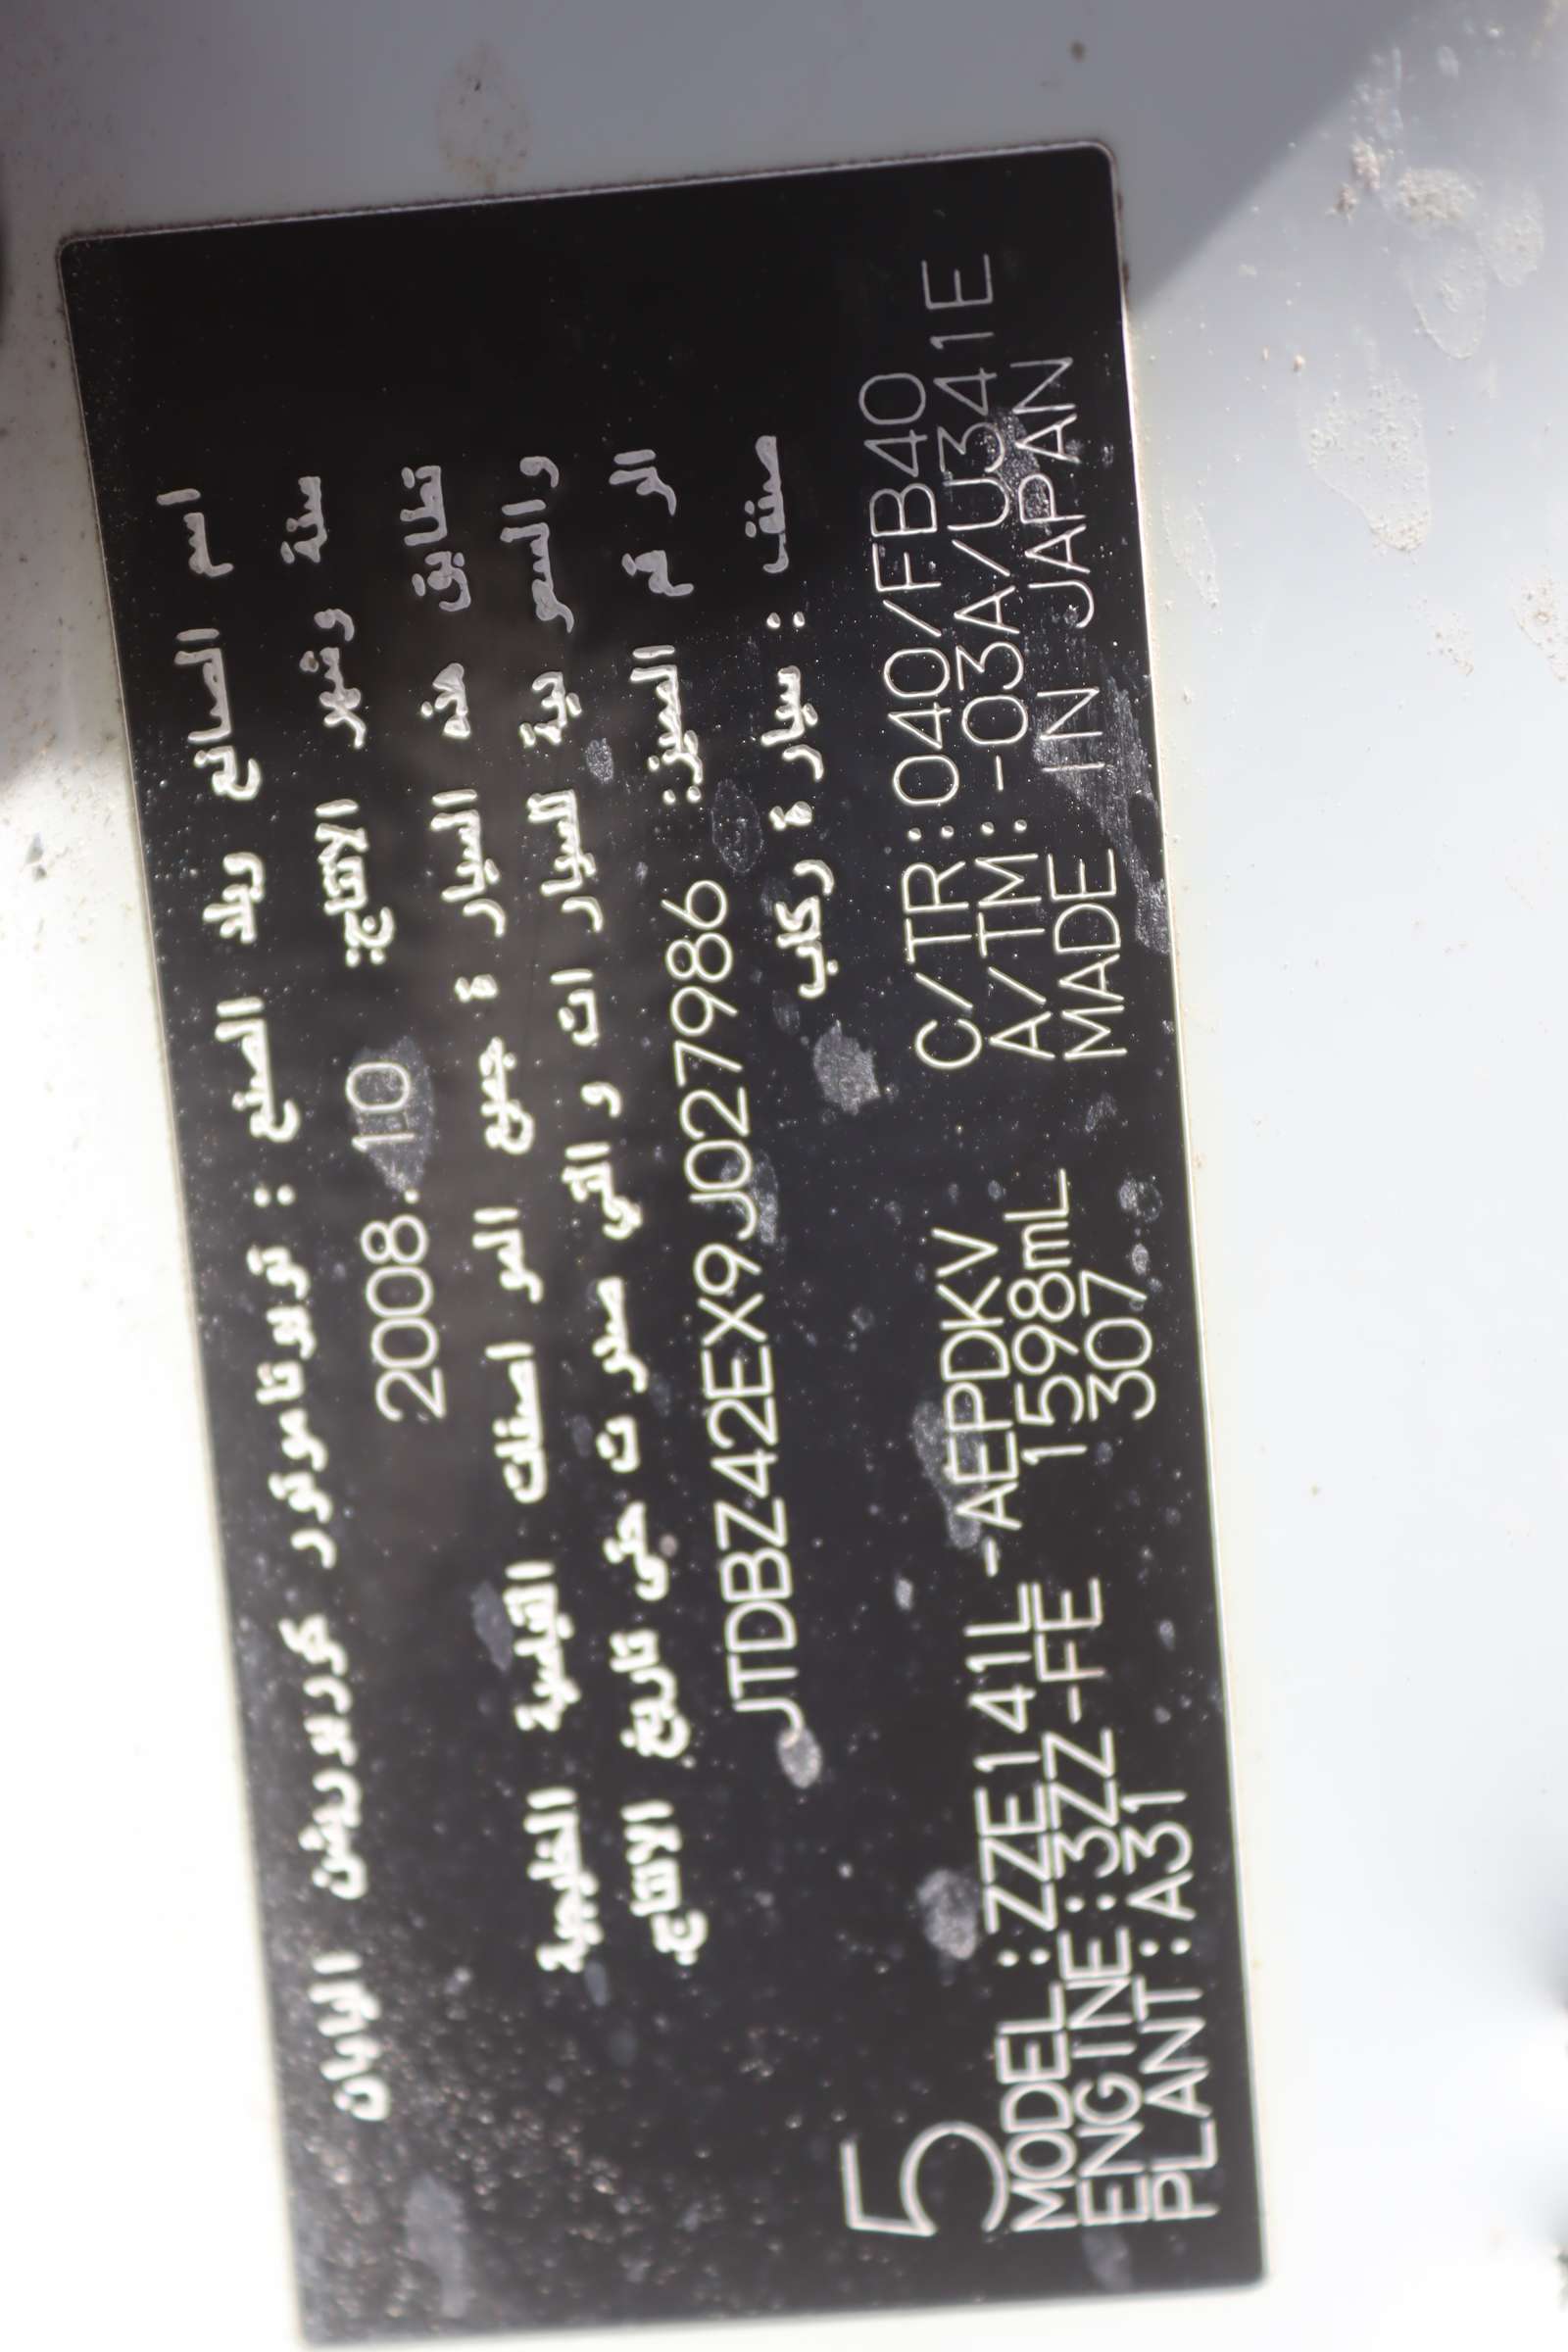 اسم الصانع وبلد الصنع : تويوتا موتور كوربوريشن اليابان
سنة وشهر الانتاج: 2008.10
تطابق هذه السيارة جميع المواصفات القياسية الخليجية
والسعودية للسيارات والتي صدرت حتى تاريخ الانتاج.
الرقم المميز: JTDBZ42EX9J027986
صنف : سيارة ركاب
5
MODEL :ZZE141L -AEPDKV C/TR:040/FB40
ENGINE:3ZZ-FE 1598mL A/TM:-03A/U341E
PLANT:A31 307 MADE IN JAPAN